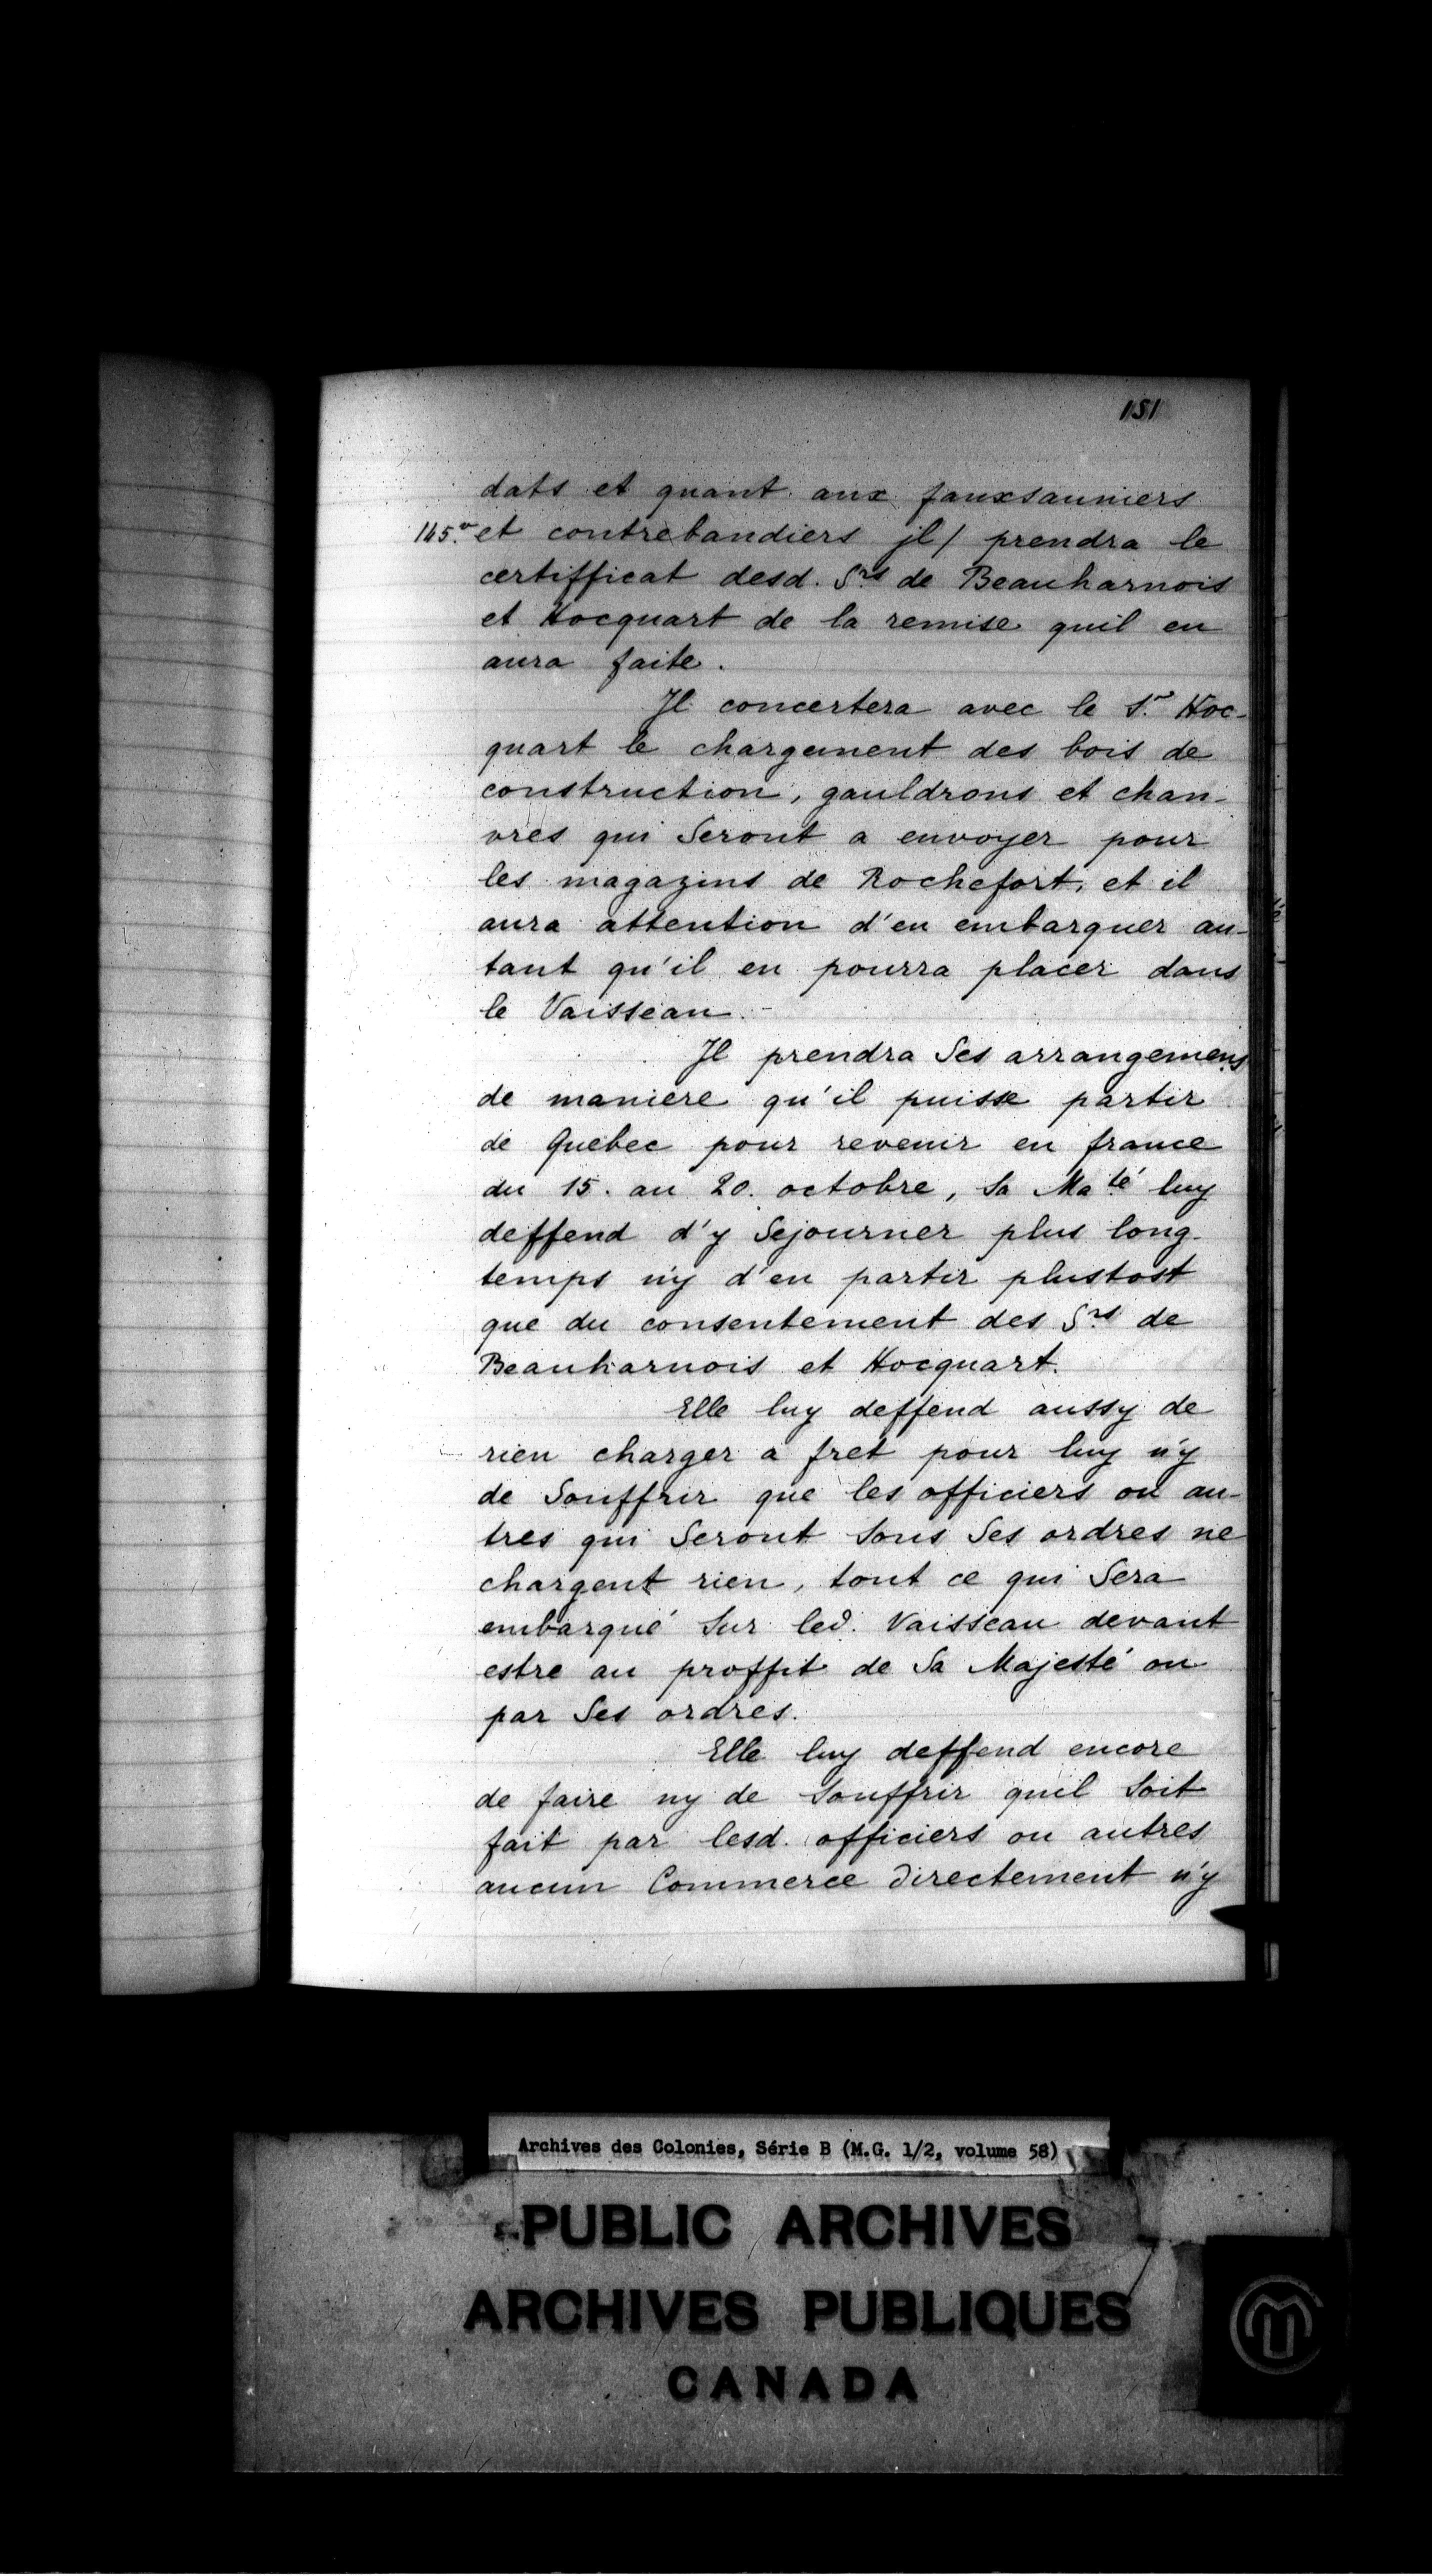 151
dats et quant aux fauxsauniers
145.v et contrebandiers jl/ prendra le
certifficat desd. Srs de Beauharnois
et Hocquart de la remise quil en
aura faite.
Jl concertera avec le S.r Hoc-
quart le chargement des bois de
construction, gauldrons et chan-
vres qui Seront a envoyer pour
les magazins de Rochefort, et il
aura attention d'en embarquer au-
tant qu'il en pourra placer dans
le Vaisseau.-
Jl prendra Ses arrangemens
de maniere qu'il puisse partir
de Quebec pour revenir en france
du 15. au 20. octobre, Sa Maté luy
deffend d'y Sejourner plus long-
temps n'y d'en partir plustost
que du consentement des Srs de
Beauharnois et Hocquart.
Elle luy deffend aussy de
rien charger a fret pour luy n'y
de Souffrir que les officiers ou au-
tres qui Seront Sous Ses ordres ne
chargent rien, tout ce qui Sera
embarqué Sur led. Vaisseau devant
estre au proffit de Sa Majesté ou
par Ses ordres.
Elle luy deffend encore
de faire ny de Souffrir quil Soit
fait par lesd. officiers ou autres
aucun Commerce directement n'y
Archives des Colonies, Série B (M.G. 1/2, volume 58)
PUBLIC ARCHIVES
ARCHIVES PUBLIQUES
CANADA